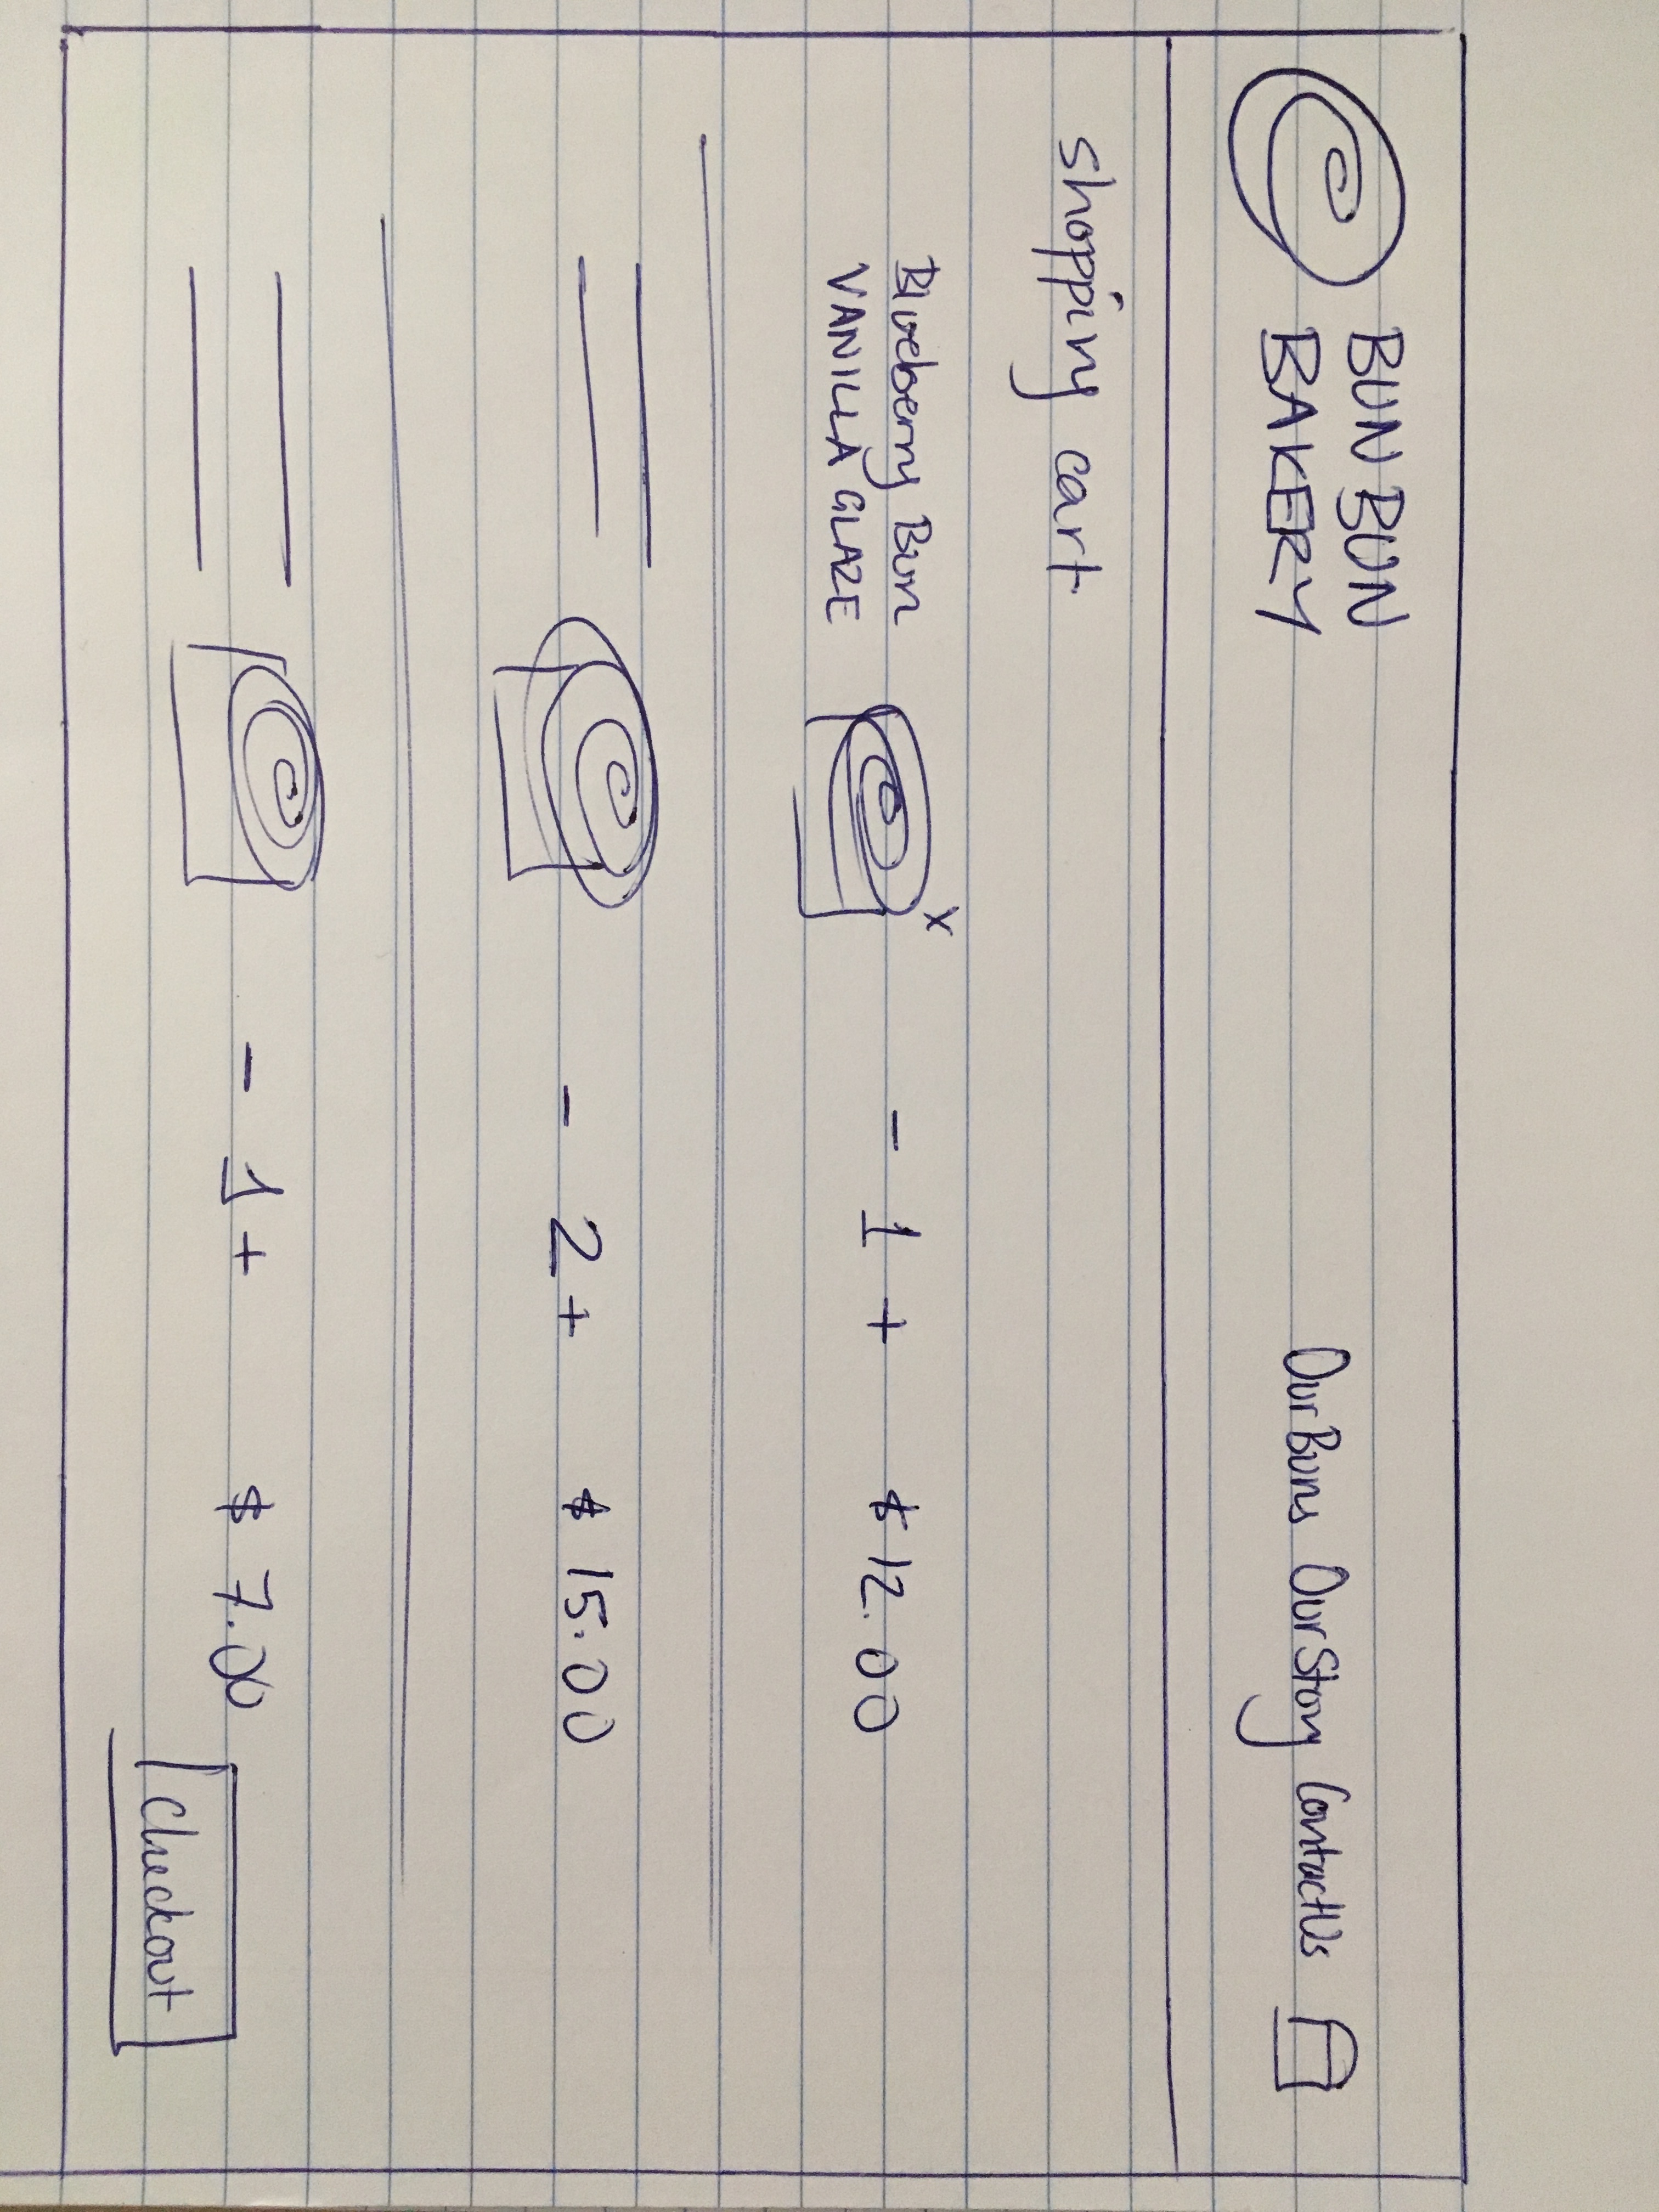 BUN BUN
BAKERY
Our Buns Our Story Contact Us
shopping cart
Blueberry Bun
VANILLA GLAZE
x
- 1 +
$ 12.00
- 2 +
$ 15.00
- 1 +
$ 7.00
Checkout